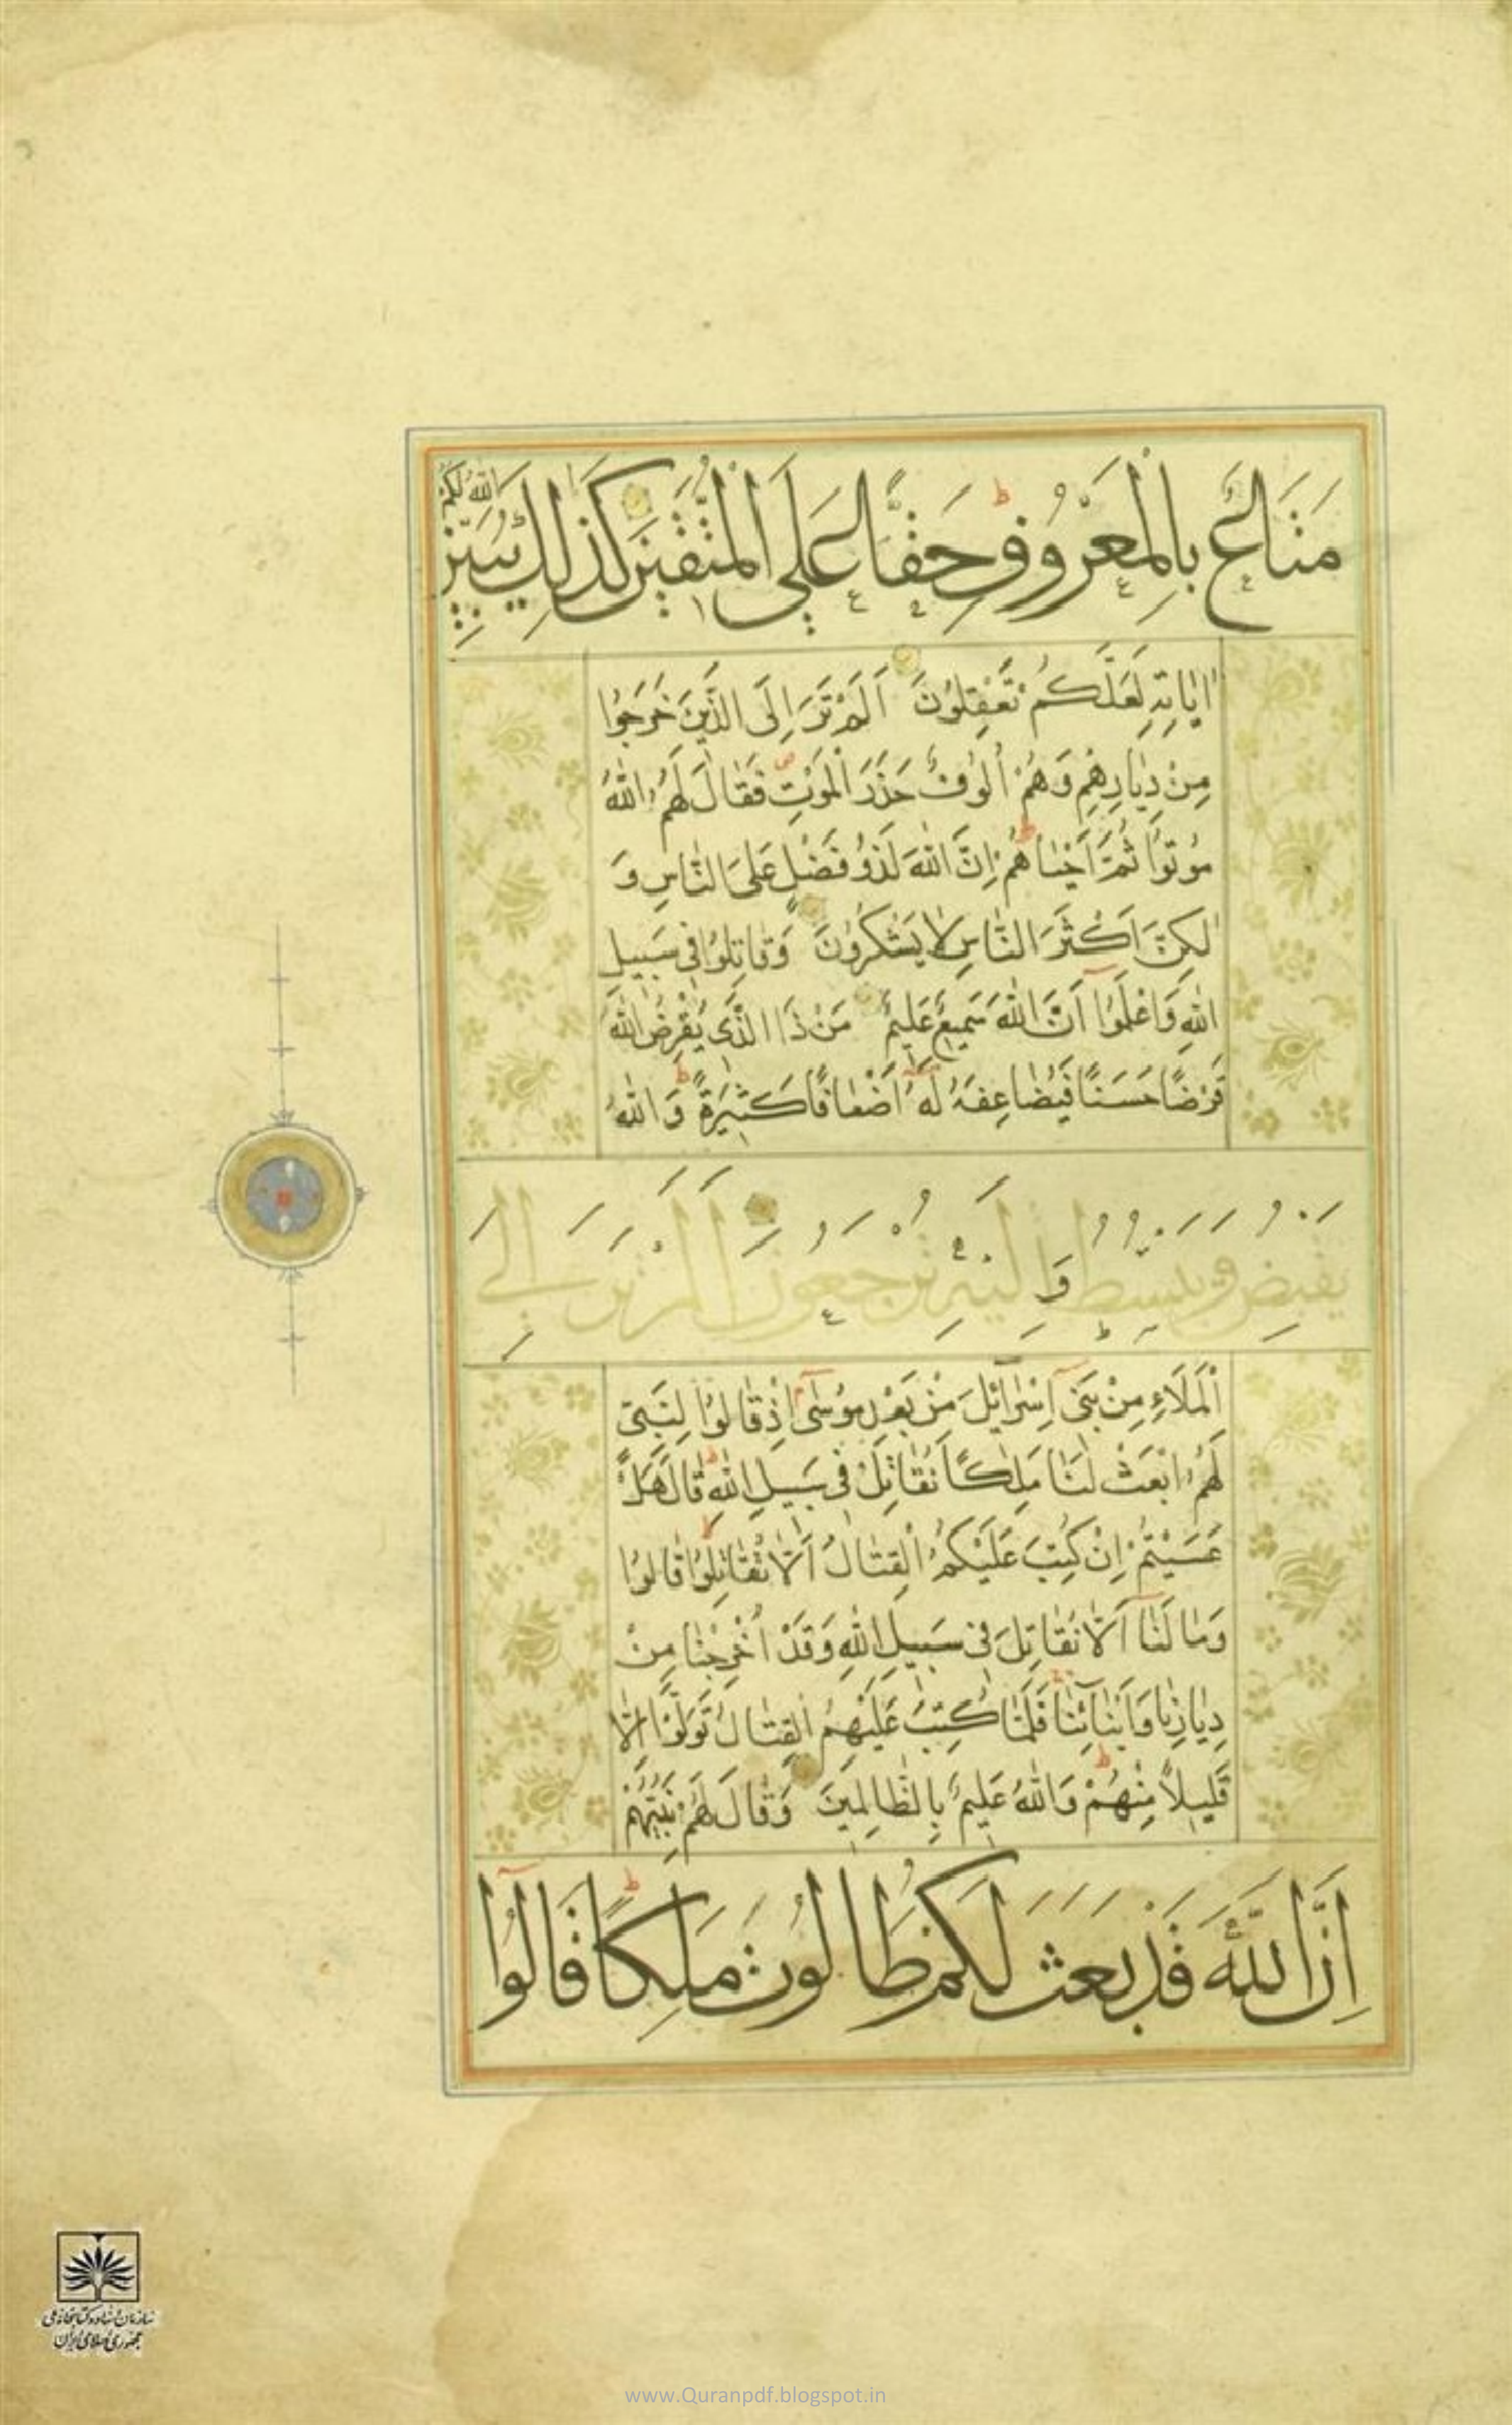 مَتَاعٌ بِالْمَعْرُوفِ حَقًّا عَلَى الْمُتَّقِينَ كَذَلِكَ يُبَيِّنُ اللّٰهُ لَكُمْ
اٰيَاتِهِ لَعَلَّكُمْ تَعْقِلُونَ اَلَمْ تَرَ اِلَى الَّذِينَ خَرَجُوا
مِنْ دِيَارِهِمْ وَهُمْ اُلُوفٌ حَذَرَ الْمَوْتِ فَقَالَ لَهُمُ اللّٰهُ
مُوتُوا ثُمَّ اَحْيَاهُمْ اِنَّ اللّٰهَ لَذُو فَضْلٍ عَلَى النَّاسِ وَ
لٰكِنَّ اَكْثَرَ النَّاسِ لَا يَشْكُرُونَ وَقَاتِلُوا فِي سَبِيلِ
اللّٰهِ وَاعْلَمُوا اَنَّ اللّٰهَ سَمِيعٌ عَلِيمٌ مَنْ ذَا الَّذِي يُقْرِضُ اللّٰهَ
قَرْضًا حَسَنًا فَيُضَاعِفَهُ لَهُ اَضْعَافًا كَثِيرَةً وَاللّٰهُ
يَقْبِضُ وَيَبْسُطُ وَاِلَيْهِ تُرْجَعُونَ اَلَمْ تَرَ اِلَى
الْمَلَاءِ مِنْ بَنِي اِسْرَائِلَ مِنْ بَعْدِ مُوسٰى اِذْ قَالُوا لِنَبِيٍّ
لَهُمُ ابْعَثْ لَنَا مَلِكًا نُقَاتِلْ فِي سَبِيلِ اللّٰهِ قَالَ هَلْ
عَسَيْتُمْ اِنْ كُتِبَ عَلَيْكُمُ الْقِتَالُ اَلَّا تُقَاتِلُوا قَالُوا
وَمَا لَنَا اَلَّا نُقَاتِلَ فِي سَبِيلِ اللّٰهِ وَقَدْ اُخْرِجْنَا مِنْ
دِيَارِنَا وَاَبْنَائِنَا فَلَمَّا كُتِبَ عَلَيْهِمُ الْقِتَالُ تَوَلَّوْا اِلَّا
قَلِيلًا مِنْهُمْ وَاللّٰهُ عَلِيمٌ بِالظَّالِمِينَ وَقَالَ لَهُمْ نَبِيُّهُمْ
اِنَّ اللّٰهَ قَدْ بَعَثَ لَكُمْ طَالُوتَ مَلِكًا قَالُوا
سازمان اسناد و کتابخانه ملی
جمهوری اسلامی ایران
www.Quranpdf.blogspot.in